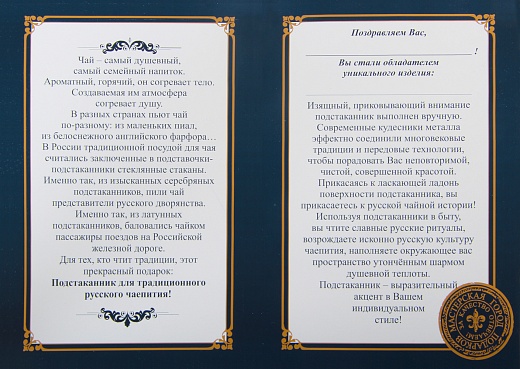 Чай – самый душевный,
самый семейный напиток.
Ароматный, горячий, он согревает тело.
Создаваемая им атмосфера
согревает душу.
В разных странах пьют чай
по-разному: из маленьких пиал,
из белоснежного английского фарфора…
В России традиционной посудой для чая
считались заключенные в подставочки-
подстаканники стеклянные стаканы.
Именно так, из изысканных серебряных
подстаканников, пили чай
представители русского дворянства.
Именно так, из латунных
подстаканников, баловались чайком
пассажиры поездов на Российской
железной дороге.
Для тех, кто чтит традиции, этот
прекрасный подарок:
Подстаканник для традиционного
русского чаепития!
Поздравляем Вас,
!
Вы стали обладателем
уникального изделия:
Изящный, приковывающий внимание
подстаканник выполнен вручную.
Современные кудесники металла
эффектно соединили многовековые
традиции и передовые технологии,
чтобы порадовать Вас неповторимой,
чистой, совершенной красотой.
Прикасаясь к ласкающей ладонь
поверхности подстаканника, вы
прикасаетесь к русской чайной истории!
Используя подстаканники в быту,
вы чтите славные русские ритуалы,
возрождаете исконно русскую культуру
чаепития, наполняете окружающее вас
пространство утончённым шармом
душевной теплоты.
Подстаканник – выразительный
акцент в Вашем
индивидуальном
стиле!
МАСТЕРСКАЯ ГОРОД ПОДАРКОВ